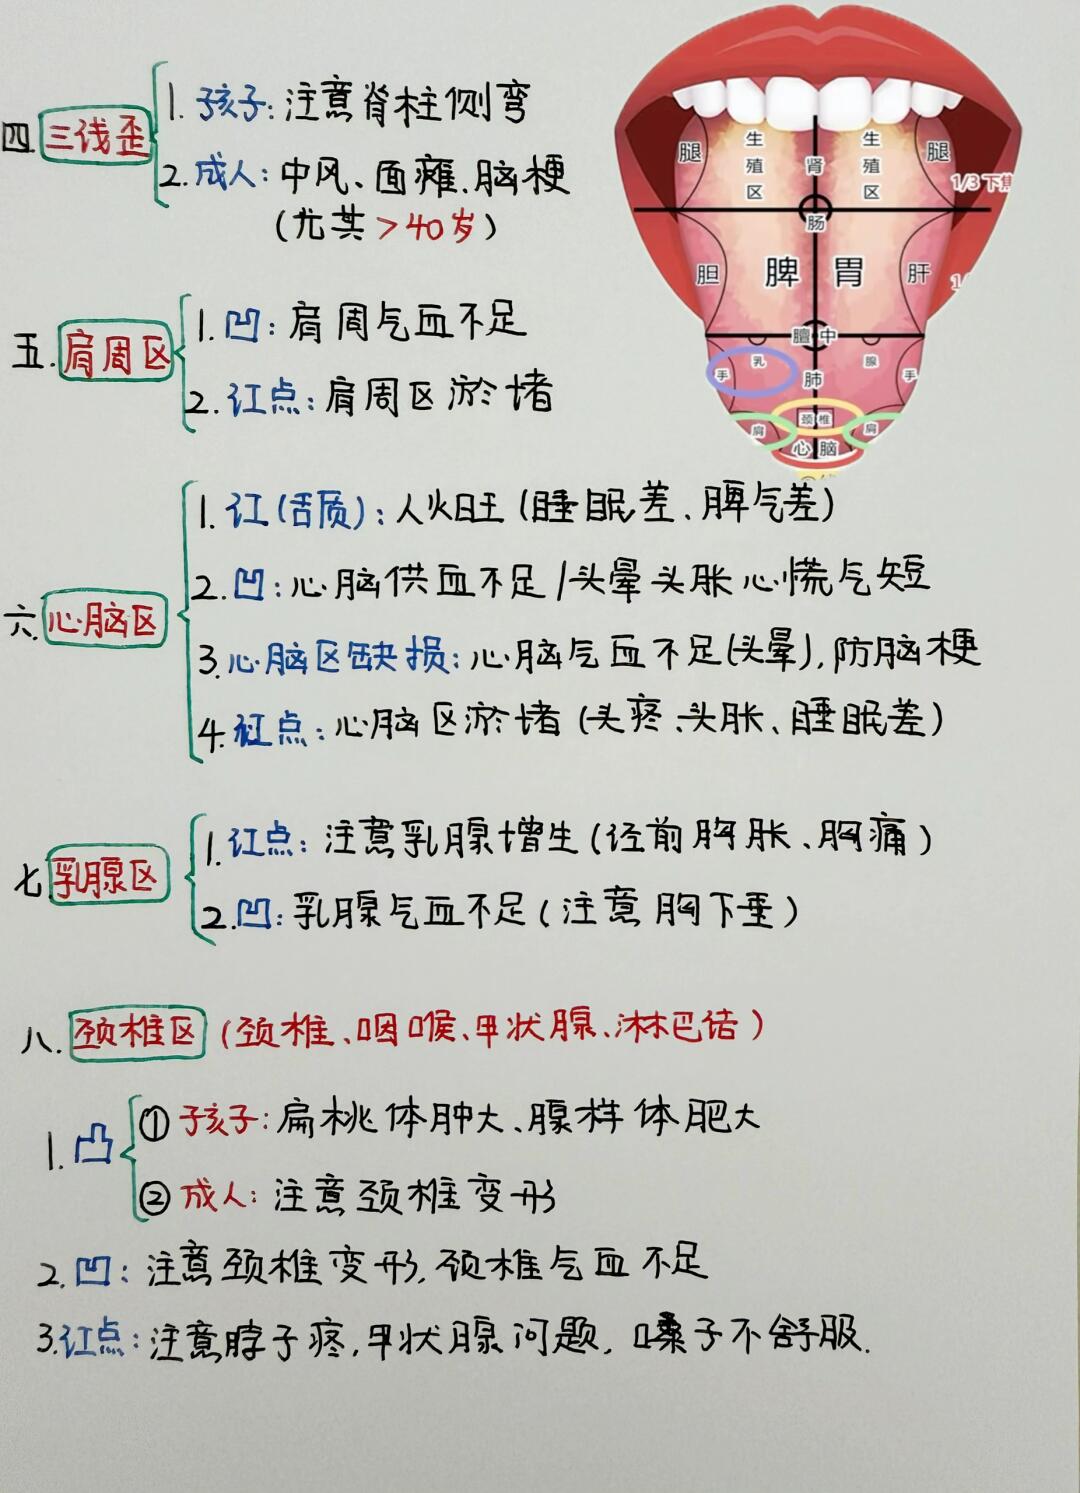 四.三线歪
1.孩子:注意脊柱侧弯
2.成人:中风、面瘫、脑梗
(尤其>40岁)
腿 生殖区 肾 生殖区 腿
1/3下焦
肠
胆 脾 胃 肝
膻中
手 乳 肺 腺 手
颈椎
肩 心 脑 肩
五.肩周区
1.凹:肩周气血不足
2.红点:肩周区淤堵
六.心脑区
1.红(舌质):人火旺(睡眠差、脾气差)
2.凹:心脑供血不足/头晕头胀心慌气短
3.心脑区缺损:心脑气血不足(头晕),防脑梗
4.红点:心脑区淤堵(头疼、头胀、睡眠差)
七.乳腺区
1.红点:注意乳腺增生(经前胸胀、胸痛)
2.凹:乳腺气血不足(注意胸下垂)
八.颈椎区(颈椎、咽喉、甲状腺、淋巴结)
1.凸
①孩子:扁桃体肿大、腺样体肥大
②成人:注意颈椎变形
2.凹:注意颈椎变形,颈椎气血不足
3.红点:注意脖子疼,甲状腺问题,嗓子不舒服.